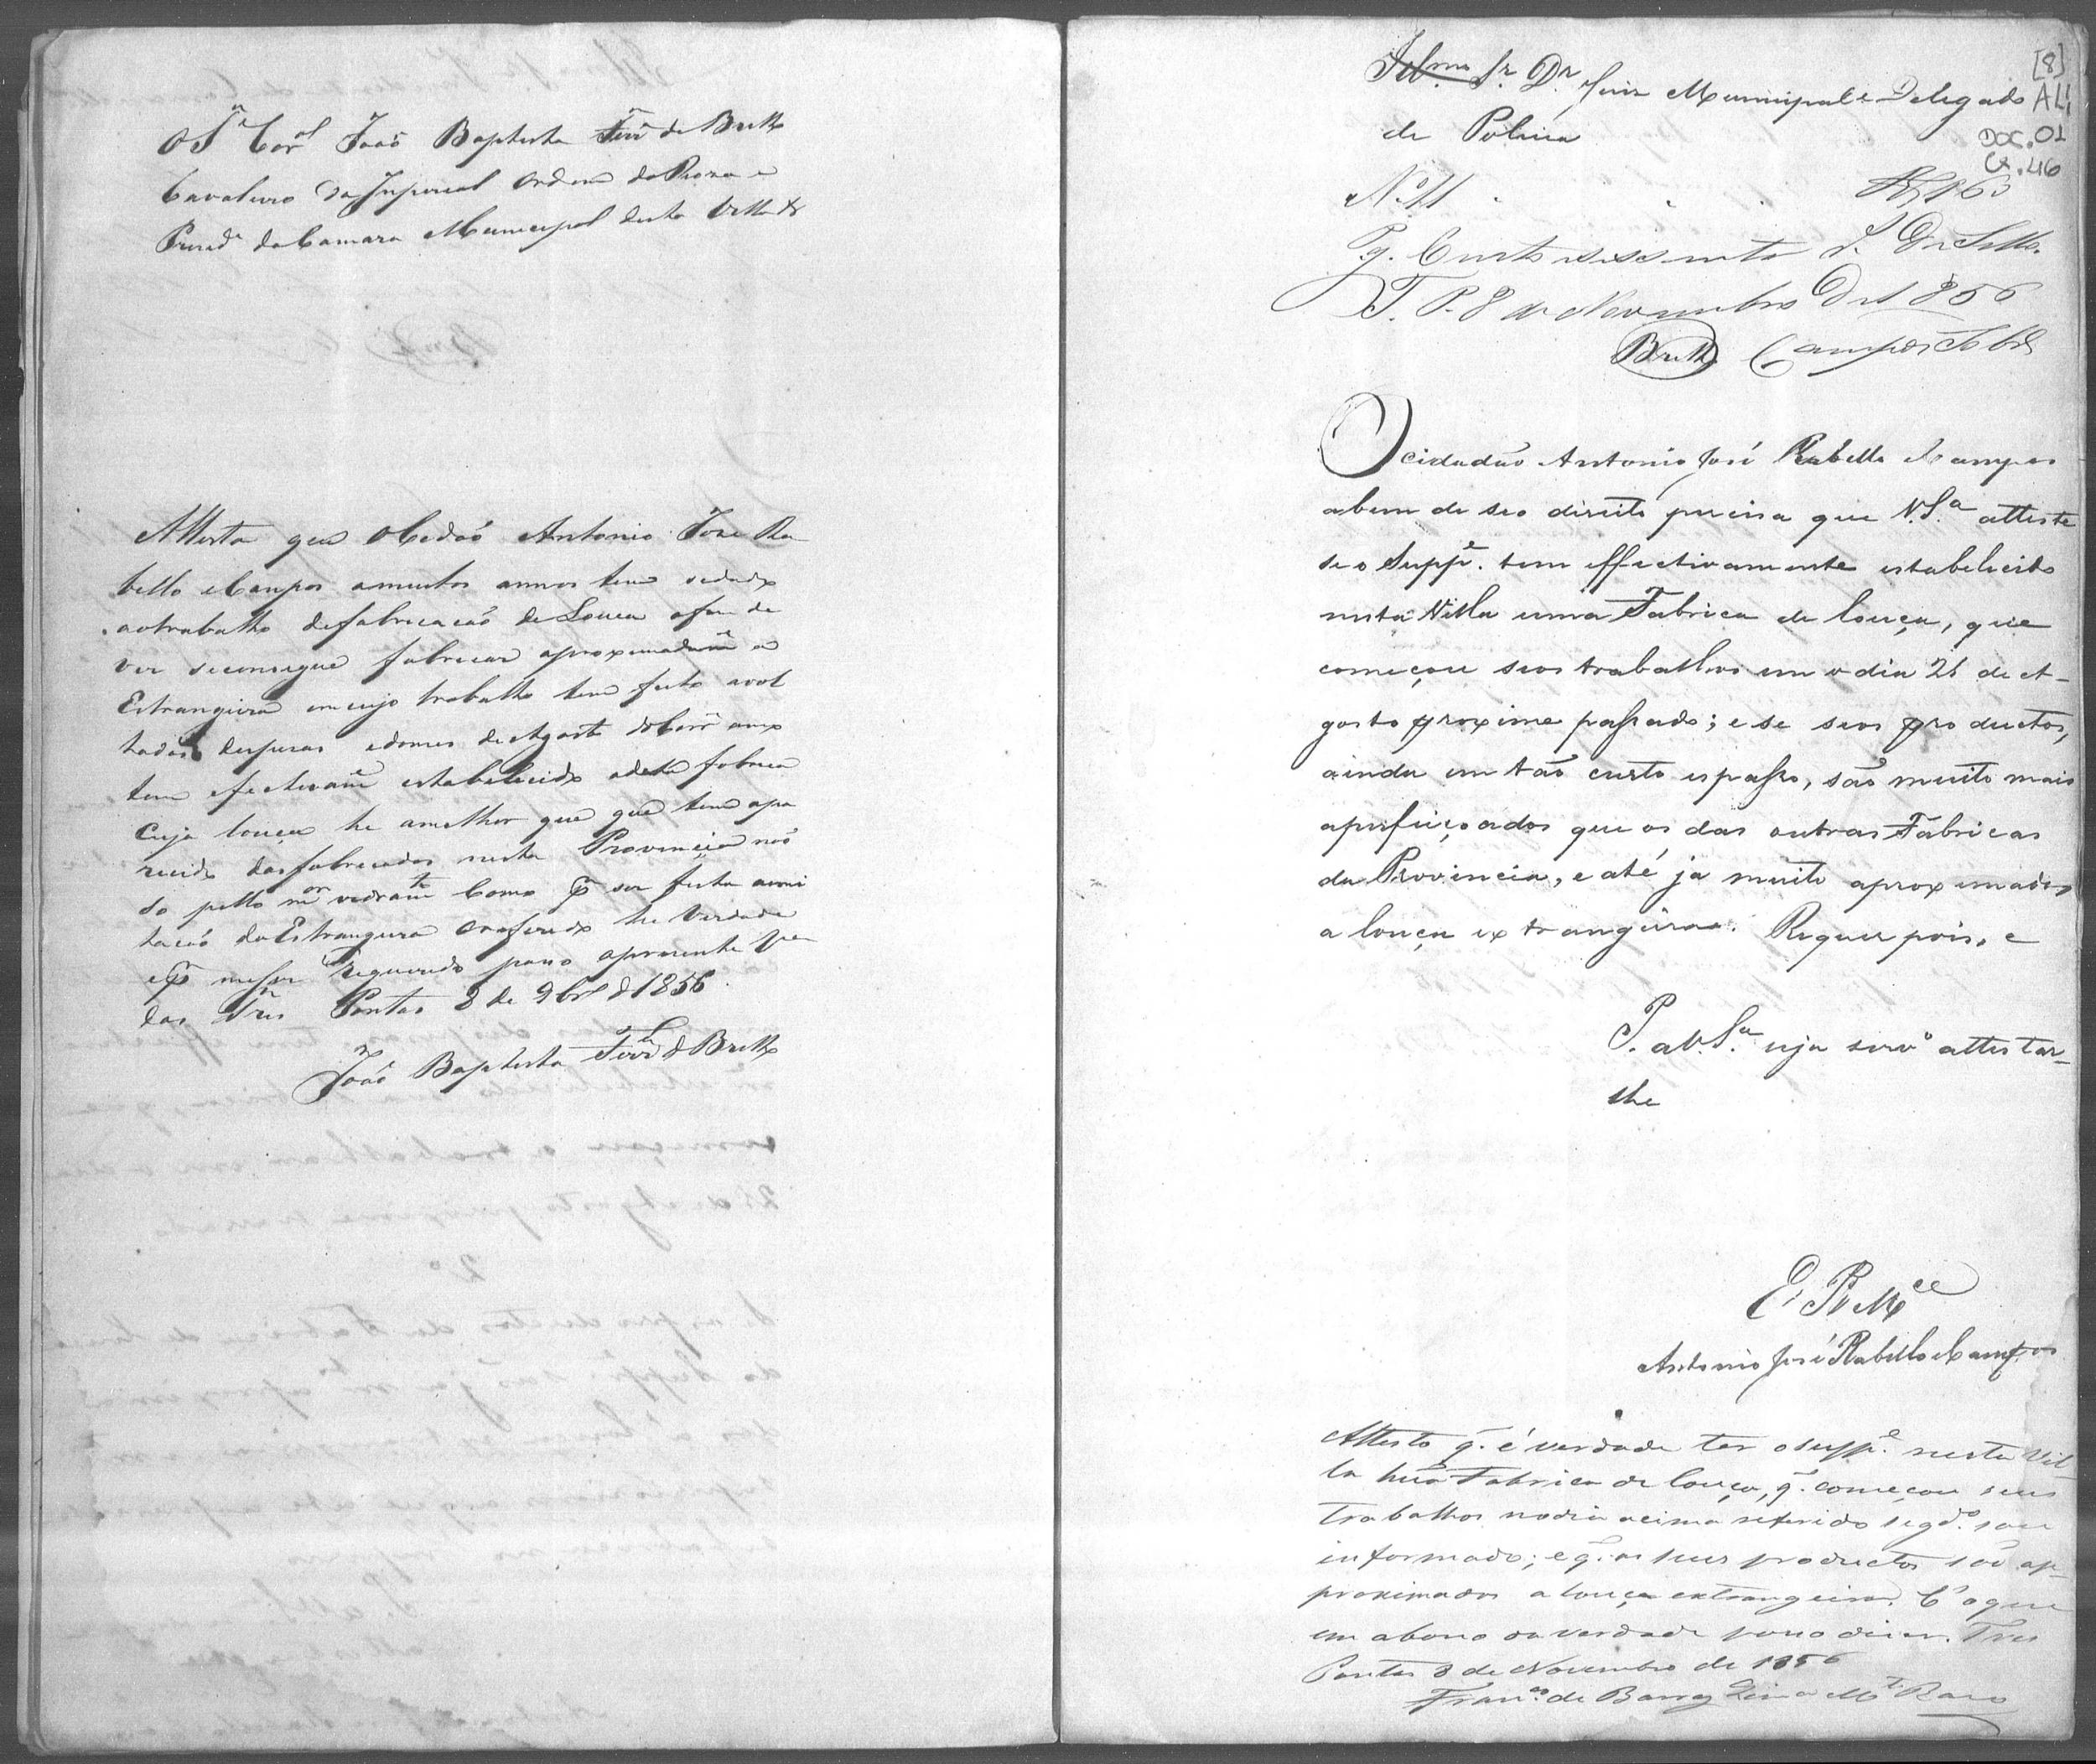 O Sr. Corel João Baptista Ferr.a de Britto
Cavaleiro da Imperial Ordem da Roza e
Prezid.e da Camara Municipal desta Villa &
Attesta que o Cidaõ Antonio Jose Ra
bello e Campos a muitos annos tem se dado
ao trabalho de fabricacaõ de Louca afim de
ver se consegue fabricar aproximadam.e a
Estrangeira em cujo trabalho tem feito avol
tadas despezas e do mez de Agosto do Corr.e anno
tem efectivam.e estabelecido a dita fabrica
Cuja louça he a melhor que que tem apa
recido das fabricadas nesta Provinçia naõ
so pello m.or vedram.to Como p.r ser feita a emi
tacaõ da Estrangeira O referido he Verdade
e p.r me ser requerido paço a prezente Va
das Tres Pontas 8 de 9br.o d 1856
João Baptista Ferr.a d Britto
[8]
AL1
DOC.01
CX.46
Illmo Sr. Dr. Juiz Municipal e Delegado
de Policia
N. 11 $160
Pg. Cento e sessenta r. De Sello.
T. P. 8 de Novembro de 1856
Britto Campos Sobr.o
O cidadão Antonio José Rabello e Campos
a bem de seo direito precisa que V.S.a atteste
se o Supp.e tem effectivamente estabelecido
nesta Villa uma Fabrica de louça, que
começou seos trabalhos em o dia 21 de A-
gosto proximo passado; e se seos productos,
ainda em tão curto espasso, são muito mais
aperfeiçoados que os das outras Fabricas
da Provincia, e até já muito aproximados
a louça extrangeira. Requer pois, e
P. a V.S.a seja serv.o attestar-
lhe
E. R. M.ce
Antonio José Rabello e Campos
Attesto q. é verdade ter o supp.e nesta Vil-
la huã Fabrica de louça, q. começou seus
trabalhos no dia acima referido segd.o sou
informado; e q. os seus productos são ap-
proximados a louça extrangeira. É o que
em abono da verdade posso dizer. Tres
Pontas 8 de Novembro de 1856
Fran.co de Barros Lima M.te Raso